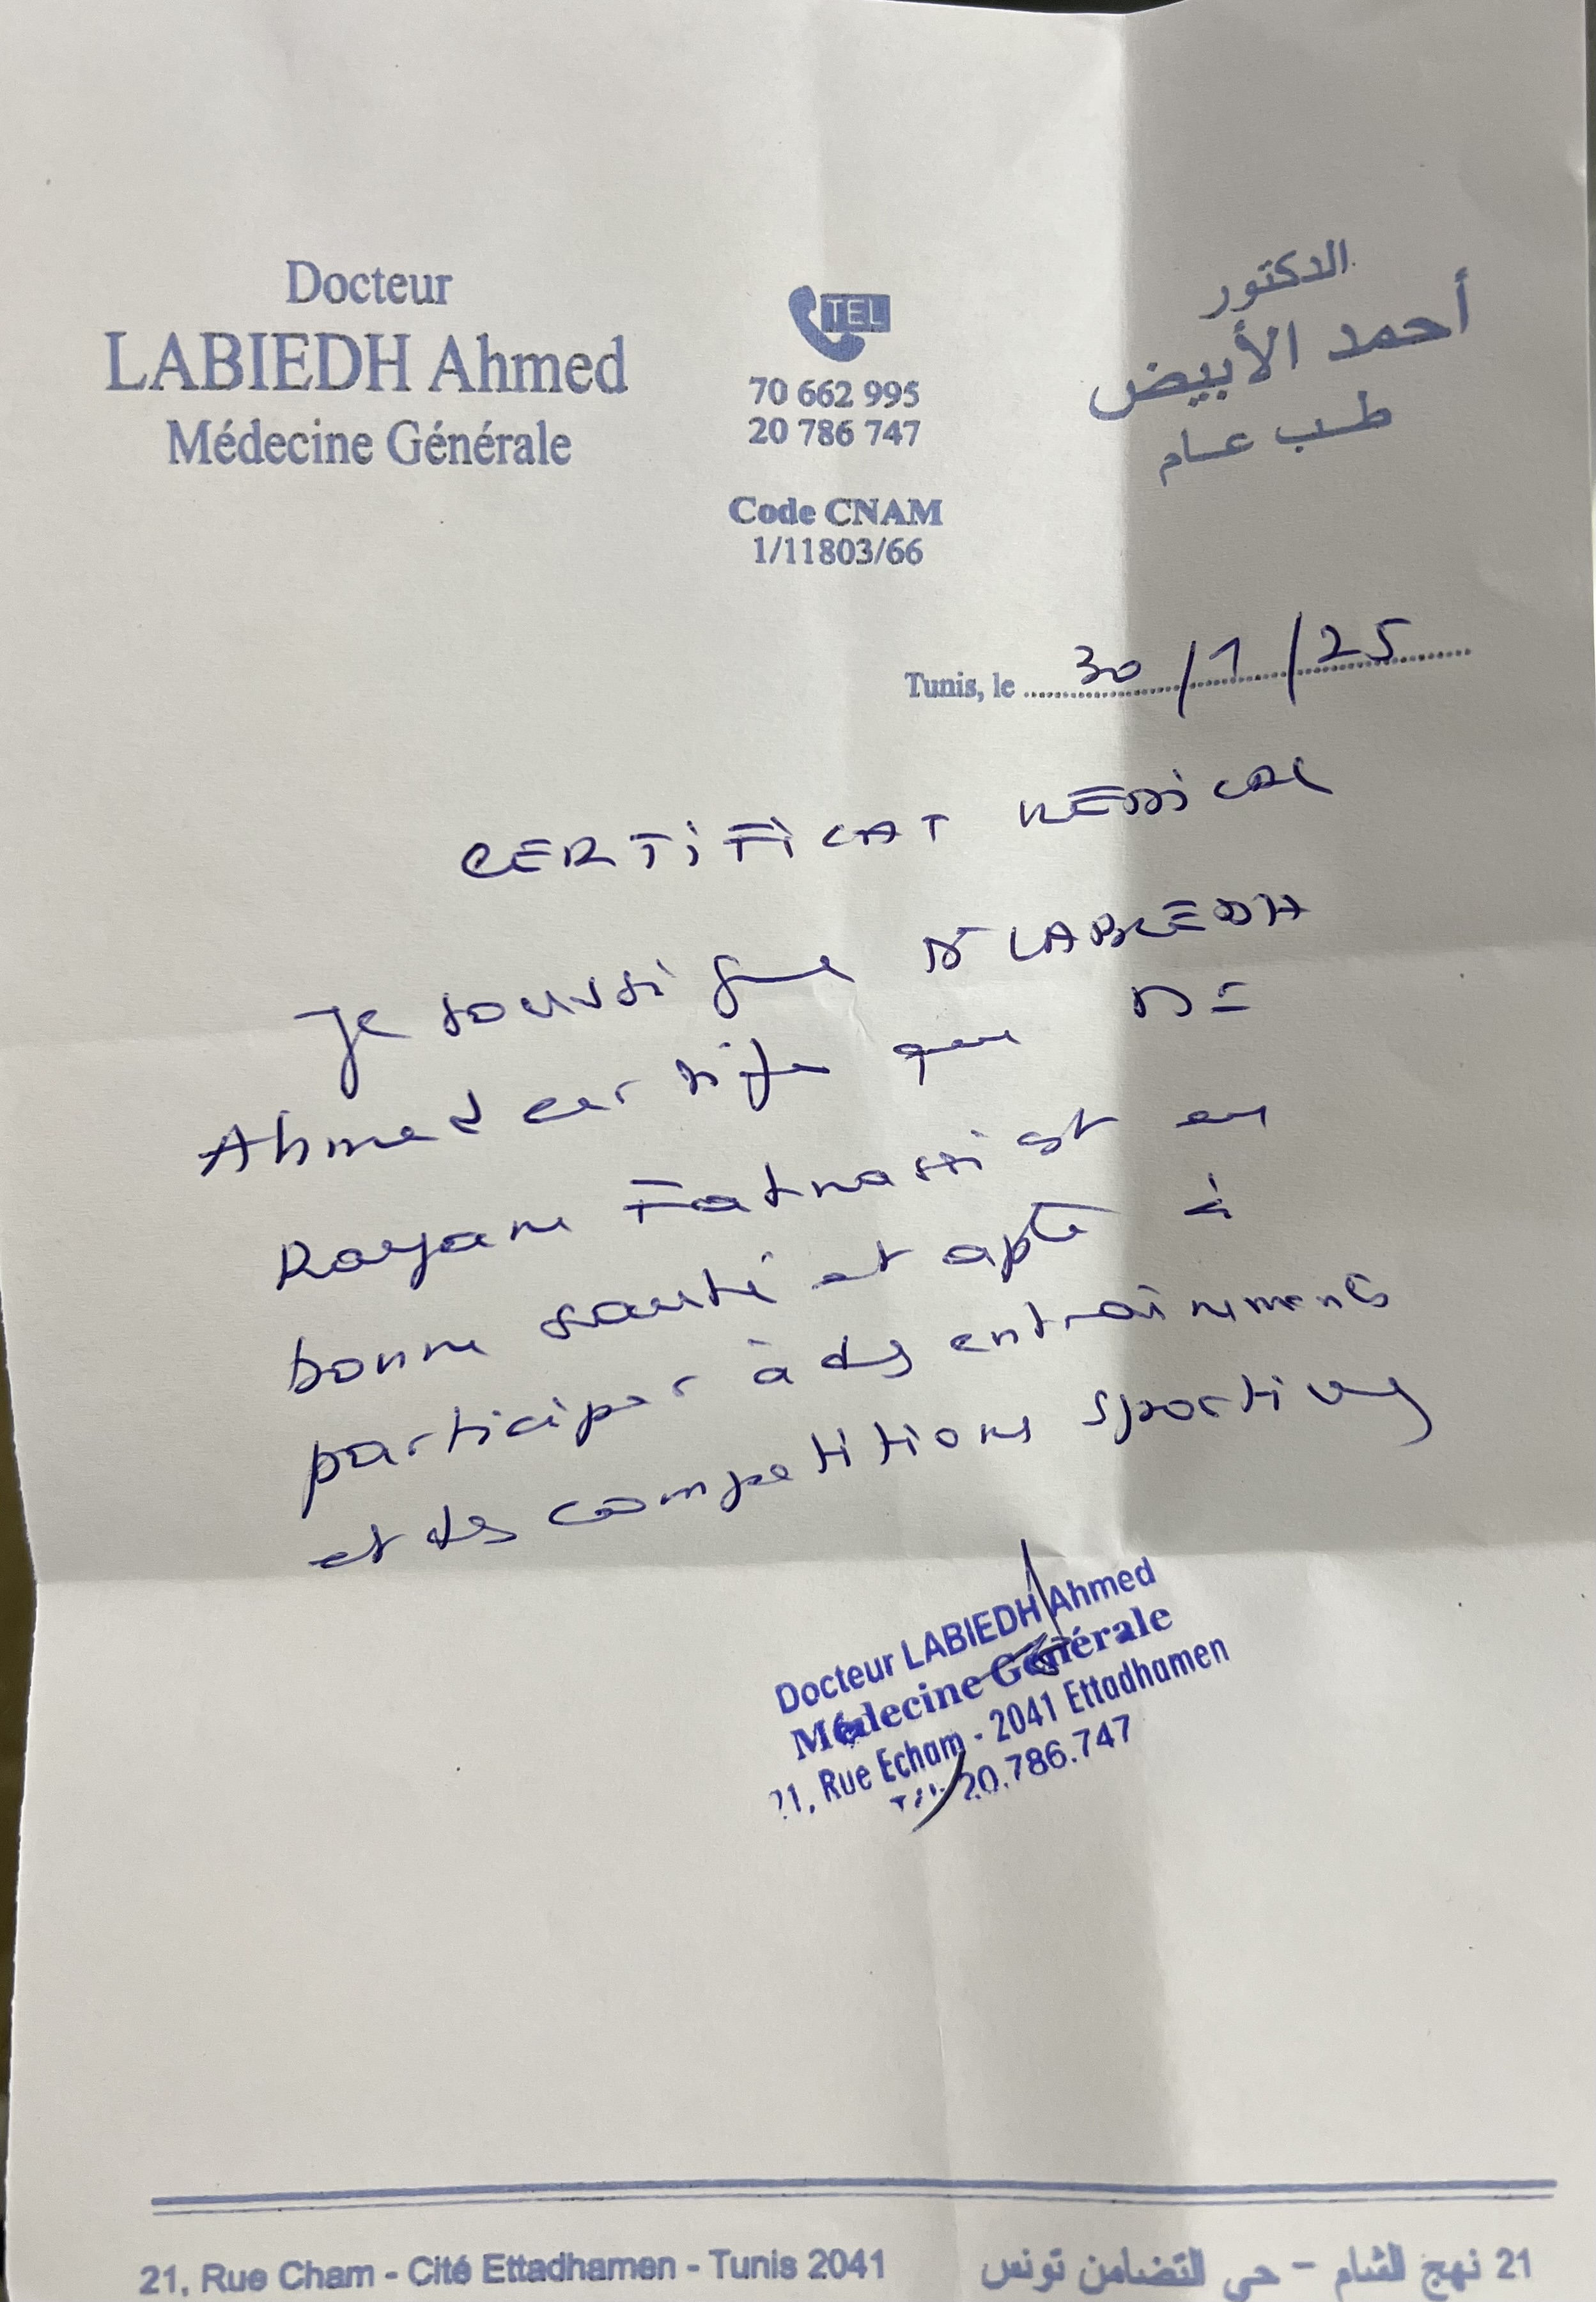 Docteur
LABIEDH Ahmed
Médecine Générale
TEL
70 662 995
20 786 747
Code CNAM
1/11803/66
الدكتور
أحمد الأبيض
طب عام
Tunis, le 30/1/25
CERTIFICAT MEDICAL
Je soussigné Dr LABIEDH
Ahmed certifie que
Rayane Fatnassi est en
bonne santé et apte à
participer à des entraînements
et des competitions sportives
Docteur LABIEDH Ahmed
Médecine Générale
21, Rue Echam - 2041 Ettadhamen
20.786.747
21, Rue Cham - Cité Ettadhamen - Tunis 2041
21 نهج الشام - حي التضامن تونس